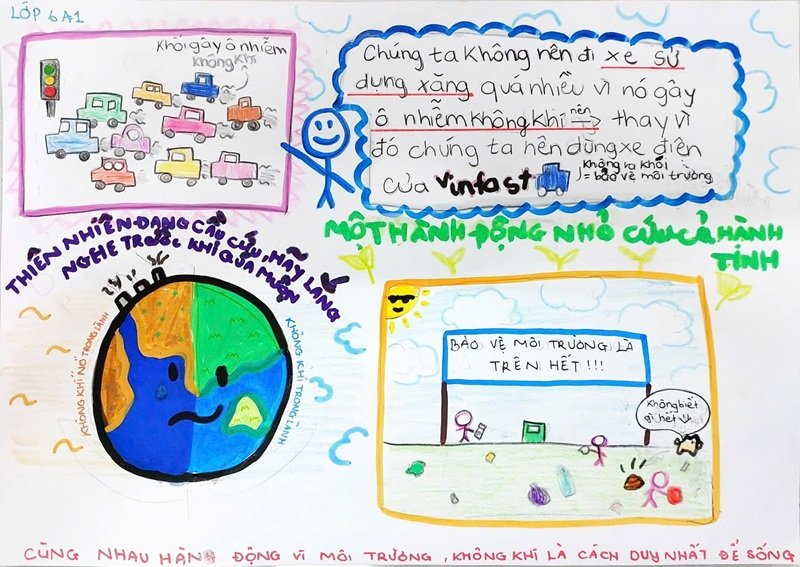 LỚP 6A1
Khói gây ô nhiễm
không khí
Chúng ta không nên đi xe sử
dụng xăng quá nhiều vì nó gây
ô nhiễm không khí nên → thay vì
đó chúng ta nên dùng xe điện
của Vinfast
không ra khói
= bảo vệ môi trường
THIÊN NHIÊN ĐANG CẦU CỨU, HÃY LẮNG
NGHE TRƯỚC KHI QUÁ MUỘN
MỘT HÀNH ĐỘNG NHỎ CỨU CẢ HÀNH
TINH
KHÔNG KHÍ NÓ TRONG LÀNH
KHÔNG KHÍ TRONG LÀNH
BẢO VỆ MÔI TRƯỜNG LÀ
TRÊN HẾT !!!
Không biết
gì hết
CÙNG NHAU HÀNH ĐỘNG VÌ MÔI TRƯỜNG, KHÔNG KHÍ LÀ CÁCH DUY NHẤT ĐỂ SỐNG